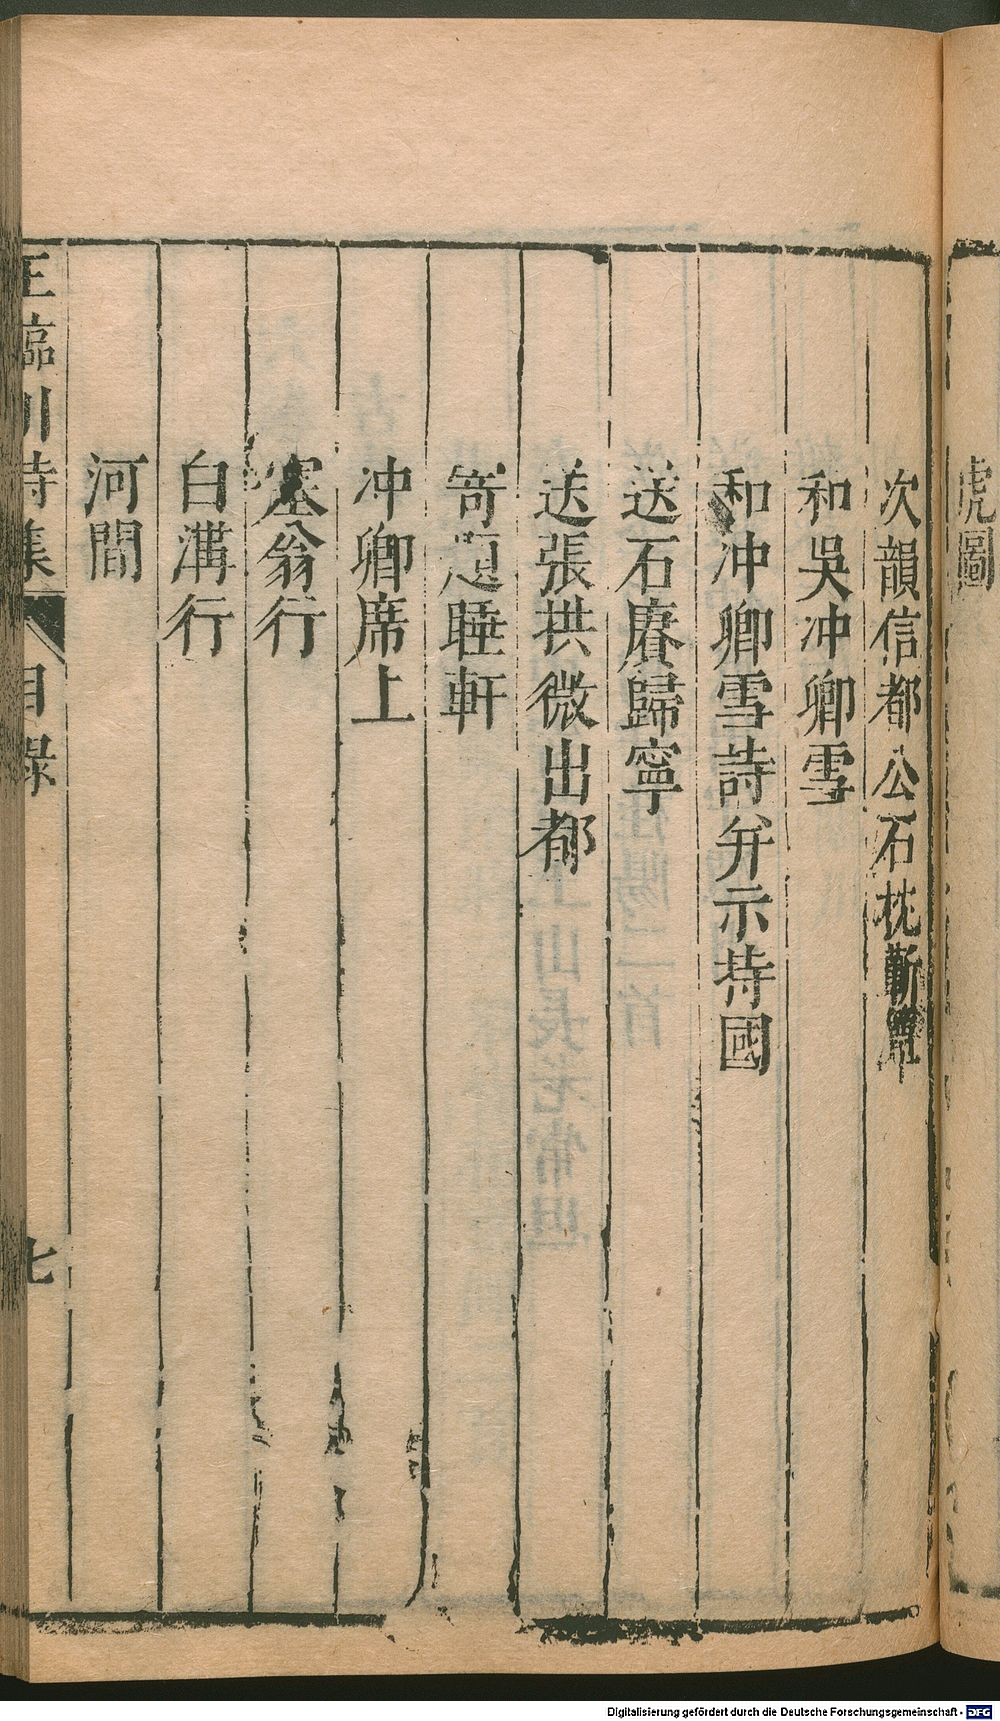 虎圖
次韻信都公石枕蘄簟
和吳冲卿雪
和冲卿雪詩并示持國
送石賡歸寧
送張拱微出都
寄題睡軒
冲卿席上
塞翁行
白溝行
河間
王臨川詩集 目錄 七
Digitalisierung gefördert durch die Deutsche Forschungsgemeinschaft - DFG